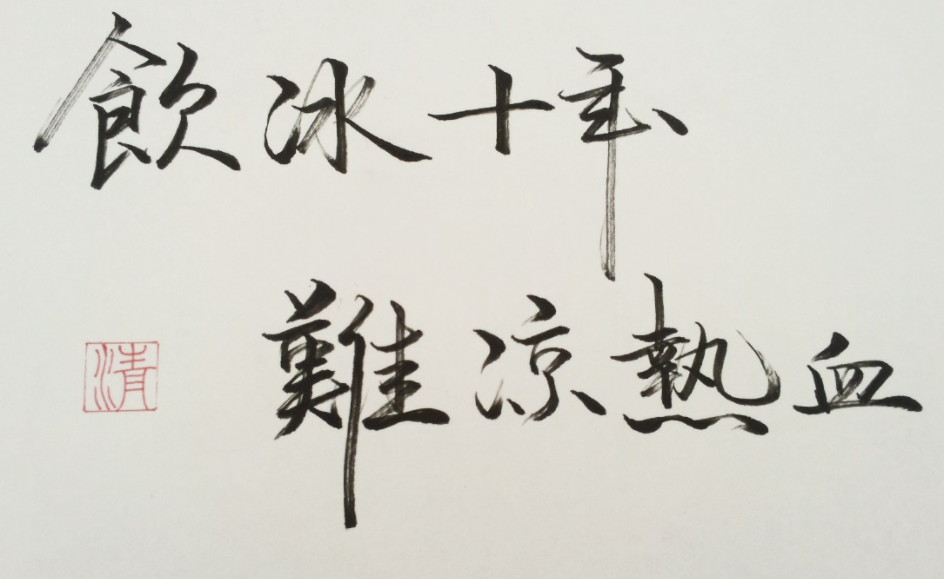 飲冰十年
難凉熱血
清